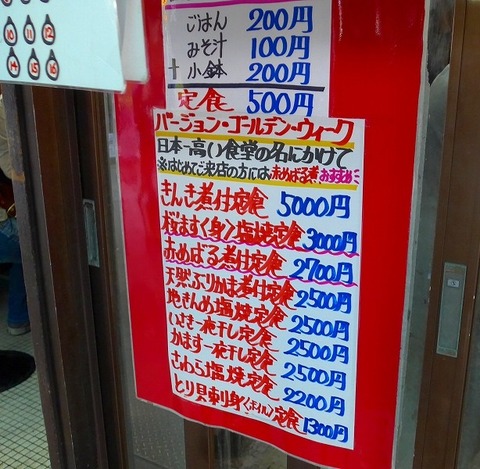 10 11 12
14 15 16
ごはん 200円
みそ汁 100円
+小鉢 200円
定食 500円
バージョン・ゴールデン・ウィーク
日本一高い食堂の名にかけて
※はじめてご来店の方には赤めばる煮おすすめ
きんき煮付定食 5000円
桜ます(く身)塩焼定食 3000円
赤めばる煮付定食 2700円
天然ぶりかま煮付定食 2500円
地きんめ塩焼定食 2500円
いさき一夜干し定食 2500円
かます一夜干し定食 2500円
さわら塩焼定食 2200円
とり貝刺身(ボイル)定食 1300円